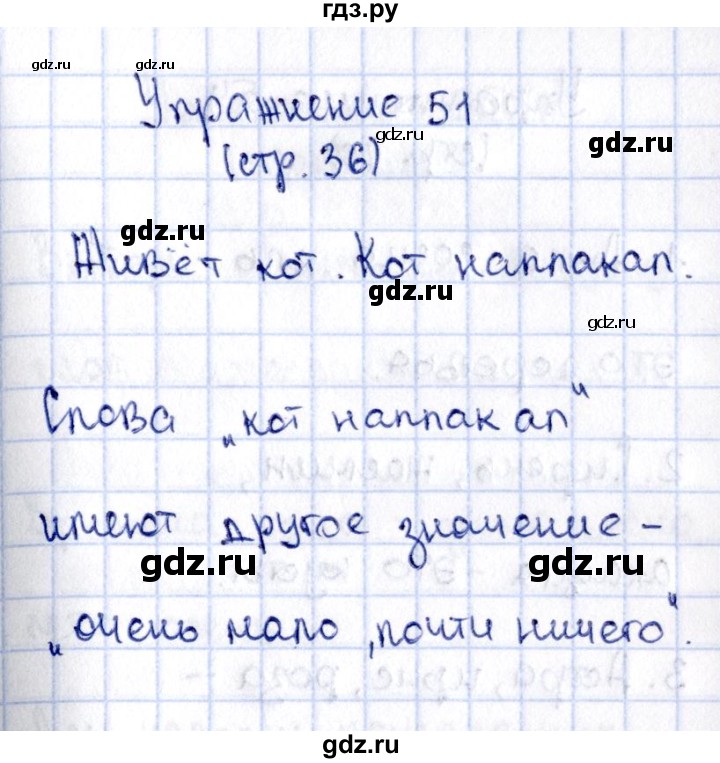 гдз.ру
gdz.ru
Упражнение 51
gdz.ru
gdz.ru
(стр. 36)
gdz.ru
Живёт кот. Кот наплакал.
gdz.ru
gdz.ru
Слова „кот наплакал"
имеют другое значение –
gdz.ru gdz.ru
„очень мало, почти ничего".
gdz.ru